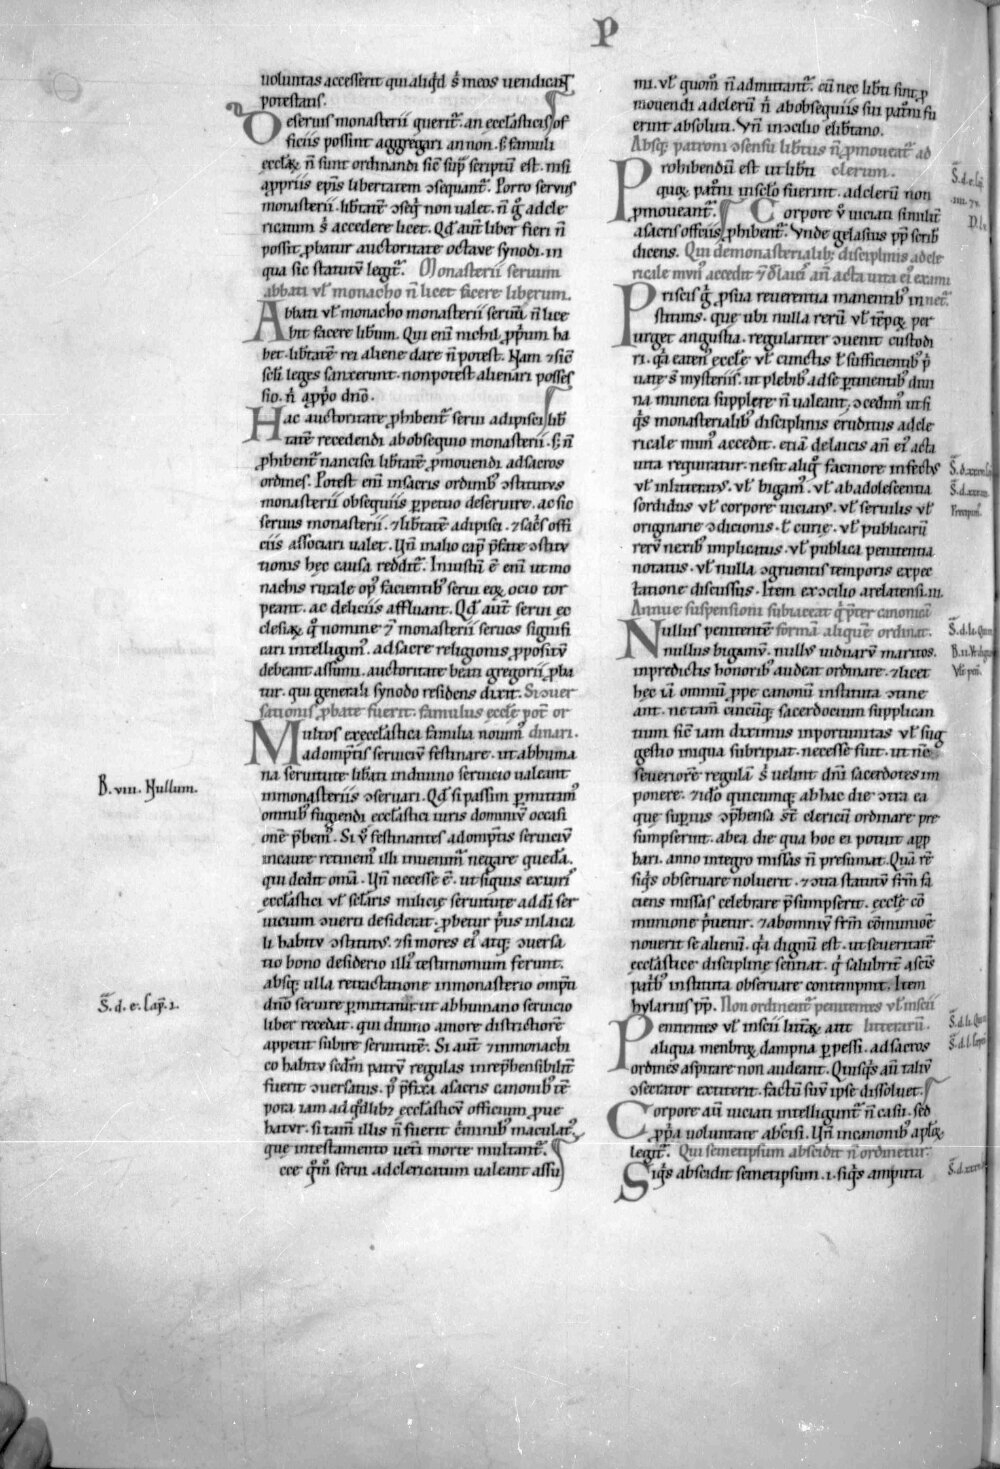 P
uoluntas accesserit qui aliq̇d s̄ meos uendicaꝗ
potestans.
De seruis monasterii querit᷑. an ecclᷓasticis of
ficiis possint aggregari an non. Sꝫ famuli
ecclᷓaꝝ n̄ sunt ordinandi sic̄ sup̄ scriptū est. nisi
a ꝓpriis ep̄is libertatem ↄsequant᷑. Porro seruus
monasterii. lib̄tatē ↄseq̇ non ualet. n̄ g̊ ad cle
ricatum s̄ accedere licet. Qd̄ aut̄ liber fieri n̄
possit. ꝓbatur auctoritate octaue synodi. in
qua sic statutū legit᷑. Monasterii seruum
abbati ul̄ monacho n̄ licet facere liberum.
Abbati ul̄ monacho monasterii seruū n̄ lice
bit facere lib̄um. Qui eni᷑ nichil ꝓpium ha
bet. lib̄tatē rei aliene dare n̄ potest. Nam ⁊ sic̄
scl̄i leges sanxerunt. non potest alienari posses
sio. n̄ a ꝓpo dn̄o.
Hac auctoritate ꝓhibent᷑ serui adipisci lib̄
tatē recedendi ab obsequio monasterii. sꝫ n̄
ꝓhibent᷑ nancisci lib̄tatē ꝓmouendi ad sacros
ordines. Potest eni᷑ in sacris ordinibꝰ ↄstitutus
monasterii obsequiis ꝑpetuo deseruire. ac sic
seruus monasterii. ⁊ lib̄tatē adipisci. ⁊ sac̄s offi
ciis associari ualet. Un̄ in alio cap̄ p̄fate ↄstitu
tionis hec causa reddit᷑. Iniustū ē eni᷑ ut mo
nachis rurale opꝰ facientibꝰ serui eoꝝ ocio tor
peant. ac deliciis affluant. Qd̄ aut̄ serui ec
clesiaꝝ q̊ nomine ⁊ monasterii seruos signifi
cari intelligimꝰ. ad sacre religionis ꝓpositū
debeant assumi. auctoritate beati gregorii ꝓba
tur. qui generali synodo residens dixit. Si ↄuer
sationis ꝓbate fuerit. famulus ecclᷓe pot̄ or
Multos ex ecclᷓastica familia nouimꝰ dinari.
ad omp̄tis seruiciū festinare. ut ab huma
na seruitute lib̄ati in diuino seruicio ualeant
in monasteriis ↄseruari. Qd̄ si passim ꝑmittamꝰ
omnibꝰ fugiendi ecclᷓastici iuris dominiū occasi
onē p̄bemꝰ. Si ū festinantes ad omp̄tis seruiciū
incaute retinemꝰ illi inuenimꝰ negare quedā.
qui dedit om̄a. Un̄ necesse ē. ut siquis ex iuris
ecclᷓastici ul̄ sclᷓaris milicie seruitute ad di᷑ ser
uicium ↄuerti desiderat. ꝓbetur p̄us in laica
li habitu ↄstitutꝰ. ⁊ si mores eiꝰ atqꝫ ↄuersa
tio bono desiderio illiꝰ testimonium ferunt.
absqꝫ ulla retractatione in monasterio omp̄ti
dn̄o seruire ꝑmittatur ut ab humano seruicio
liber recedat. qui diuino amore districtiorē
appetit subire seruitutē. Si aut̄ ⁊ in monachi
co habitu scd̄m patrū regulas inrep̄hensibilit̄
fuerit ↄuersatus. pꝰ p̄fixa a sacris canonibꝰ tē
pora iam ad q̄dlibꝫ ecclᷓasticū officium ꝓue
hatur. si tam̄ illis n̄ fuerit c̄minibꝰ maculatꝰ.
que in testamento ueti᷑ morte multant᷑.
cce q̊m serui ad clericatum ualeant assu
mi. ul̄ quom̊ n̄ admittant᷑. cū nec lib̄ti sint ꝓ
mouendi ad clerū n̄ ab obsequiis sui pat̊ni fu
erint absoluti. Un̄ in ↄcilio elib̄tano.
Absqꝫ patroni ↄsensu lib̄tus n̄ ꝓmoueat᷑ ad
Prohibendū est ut lib̄ti clerum.
quoꝝ pat̊ni in sclᷓo fuerint. ad clerū non
ꝓmoueant᷑. Corpore ū uiciati similit̄
a sacris officiis ꝓhibent᷑. Unde gelasius pp̄ scrib̄
dicens. Qui de monasterialibꝫ disciplinis ad cle
ricale munꝰ accedit ⁊ d̄ laicꝰ an̄ acta uita eiꝰ exami
Priscis g̊ ꝓ sua reuerentia manentibꝰ in net᷑.
stitutis. que ubi nulla rerū ul̄ tēpoꝝ per
urget angustia. regulariter ↄuenit custodi
ri. q̇a eatenꝰ ecclᷓe ul̄ cunctis t̄ sufficientibꝰ p̄
uate s̄ mysteriis. ut plebibꝰ ad se ꝑtinentibꝰ diui
na munera supplere n̄ ualeant. ↄcedimꝰ ut si
q̇s monasterialibꝰ disciplinis eruditus ad cle
ricale munꝰ accedit. etiā de laicis an̄ eiꝰ acta
uita requiratur. ne sit aliq̊ facinore infectꝰ
ul̄ inlitteratꝰ. ul̄ bigamꝰ. ul̄ ab adolescentia
sordidus ul̄ corpore uiciatꝰ. ul̄ seruilis ul̄
originarie ↄdicionis. t̄ curie. ul̄ publicarū
rerū nexibꝰ implicitus. ul̄ publica penitentia
notatus. ul̄ nulla ↄgruentis temporis expec
tatione discussus. Item ex ↄcilio arelatensi .iii.
Annue suspensioni subiaceat q̇ p̄ter canonicā
Nullus penitentē formā aliquē ordinat.
nullus bigamū. nullꝰ uiduarū maritos.
in predictis honoribꝰ audeat ordinare. ⁊ licet
hec iā omniū ꝓpe canonū instituta ↄtine
ant. ne tam̄ cuicūqꝫ sacerdocium supplican
tium sic̄ iam diximus inportunitas ul̄ sug
gestio iniqua subripiat. necesse fuit. ut n̄c̄
seueriorē regulā s̄ uelint dn̄i sacerdotes im
ponere. ⁊ idō quicumqꝫ ab hac die ↄtra ea
que supius ↄp̄hensa st̄ clericū ordinare pre
sumpserint. ab ea die qua hoc ei potuit app
bari. anno integro missas n̄ presumat. Quā rē
siq̇s obseruare noluerit. ⁊ ↄtra statutū fr̄m fa
ciens missas celebrare p̄sumpserit. ecclᷓe cō
munione p̄uetur. ⁊ ab omniū fr̄m cōmunioē
nouerit se alienū. q̇a dignū est. ut seueritatē
ecclᷓastice discipline sentiat. q̇ salubrit̄ a sc̄is
patribꝰ instituta obseruare contempnit. Item
hylarius pp̄. Non ordinent᷑ penitentes ul̄ inscii
Penitentes ul̄ inscii litt̄aꝝ aut litterarū.
aliqua menbroꝝ dampna ꝑpessi. ad sacros
ordines aspirare non audeant. Quisq̇s aū taliū
ↄsecrator extiterit. factū suū ipse dissoluet.
Corpore aū uiciati intelligunt᷑ n̄ casu. sed
ꝓp̄a uoluntate abscisi. Un̄ in canonibꝰ aplᷓoꝝ
legit᷑. Qui semetipsum abscidit n̄ ordinetur.
Siq̇s abscidit semetipsum .i. siq̇s amputa
B. viii. Nullum.
S̄. d. e. Cap̄. 1.
S̄. d. e. Cap̄.
S̄. d. li. Quia
S̄. d. l. Cap̄